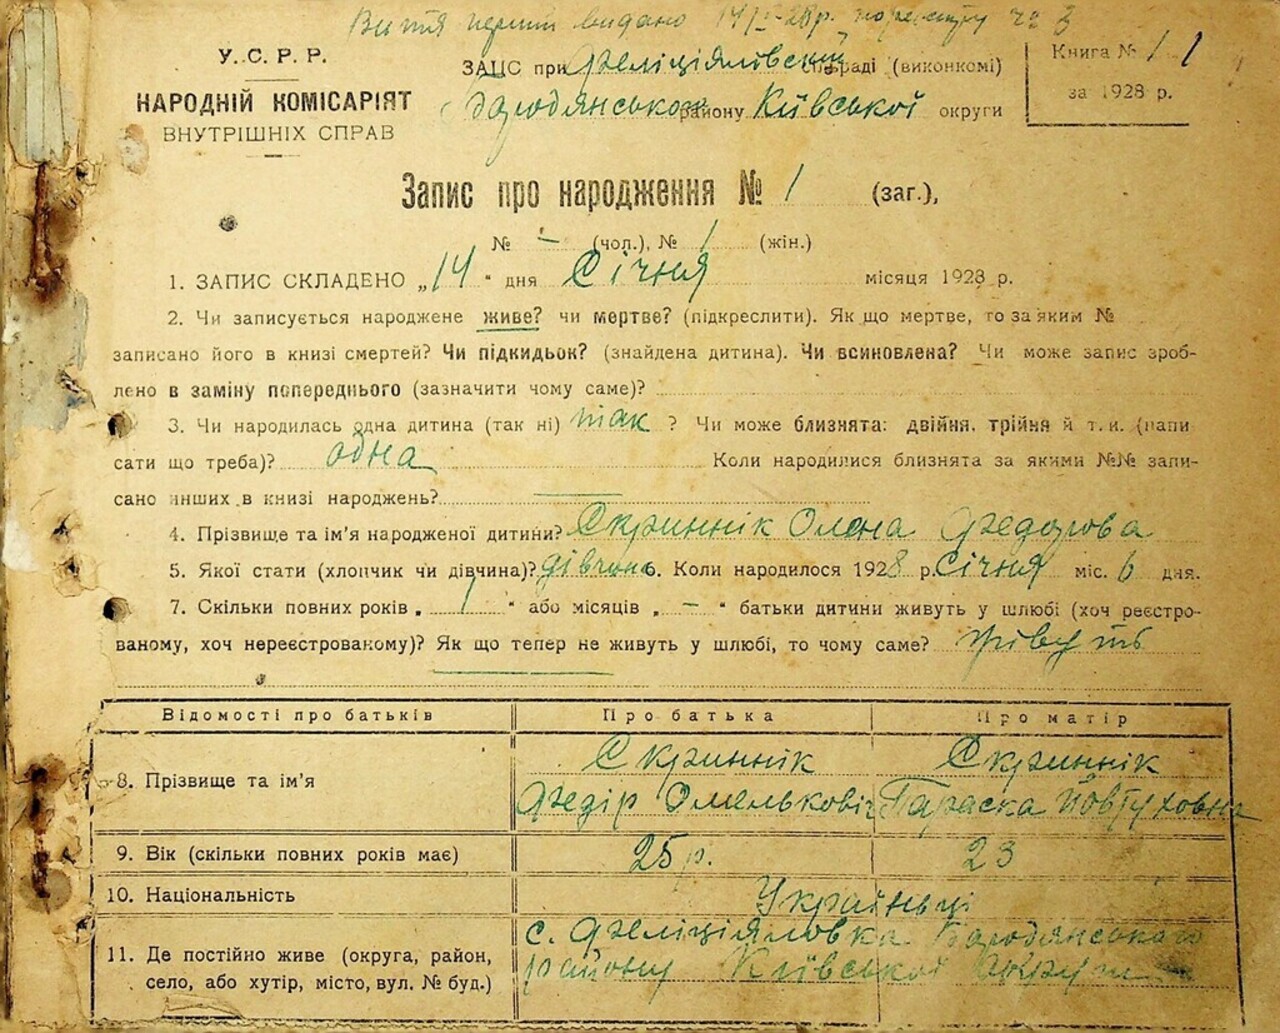 Витяг перший видано 14/I-28р. по реєстру ч. 3
У. С. Р. Р.
НАРОДНІЙ КОМІСАРІЯТ
ВНУТРІШНІХ СПРАВ
ЗАЦС при Феліціялівській сільраді (виконкомі)
Бародянського району Київської округи
Книга № 1
за 1928 р.
Запис про народження № 1 (заг.),
№ — (чол.), № 1 (жін.)
1. ЗАПИС СКЛАДЕНО „14" дня Січня місяця 1928 р.
2. Чи записується народжене живе? чи мертве? (підкреслити). Як що мертве, то за яким №
записано його в книзі смертей? Чи підкидьок? (знайдена дитина). Чи всиновлена? Чи може запис зроб-
лено в заміну попереднього (зазначити чому саме)?
3. Чи народилась одна дитина (так ні) так ? Чи може близнята: двійня, трійня й т. и. (напи
сати що треба)? одна Коли народилися близнята за якими №№ запи-
сано инших в книзі народжень? —
4. Прізвище та ім'я народженої дитини? Скриннік Олена Федорова
5. Якої стати (хлопчик чи дівчина)? дівчина 6. Коли народилося 1928 р. Січня міс. 6 дня.
7. Скільки повних років „ 1 " або місяців „ — " батьки дитини живуть у шлюбі (хоч реєстро-
ваному, хоч нереєстрованому)? Як що тепер не живуть у шлюбі, то чому саме? живуть
Відомості про батьків Про батька Про матір
8. Прізвище та ім'я Скриннік Федір Омелькович Скриннік Параска Йовтуховна
9. Вік (скільки повних років має) 25 р. 23
10. Національність Українці
11. Де постійно живе (округа, район, с. Феліціяловка Бародянського
село, або хутір, місто, вул. № буд.) району Київської округи